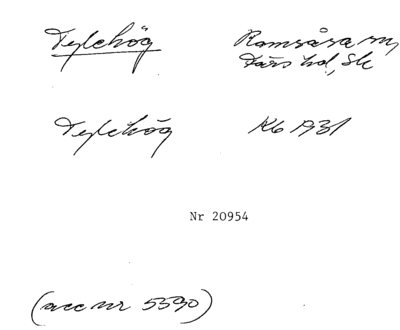 Tylehög Ramsåsa sn,
Färs hd, Sk
Tylehög Kb 1931
Nr 20954
(acc nr 5390)